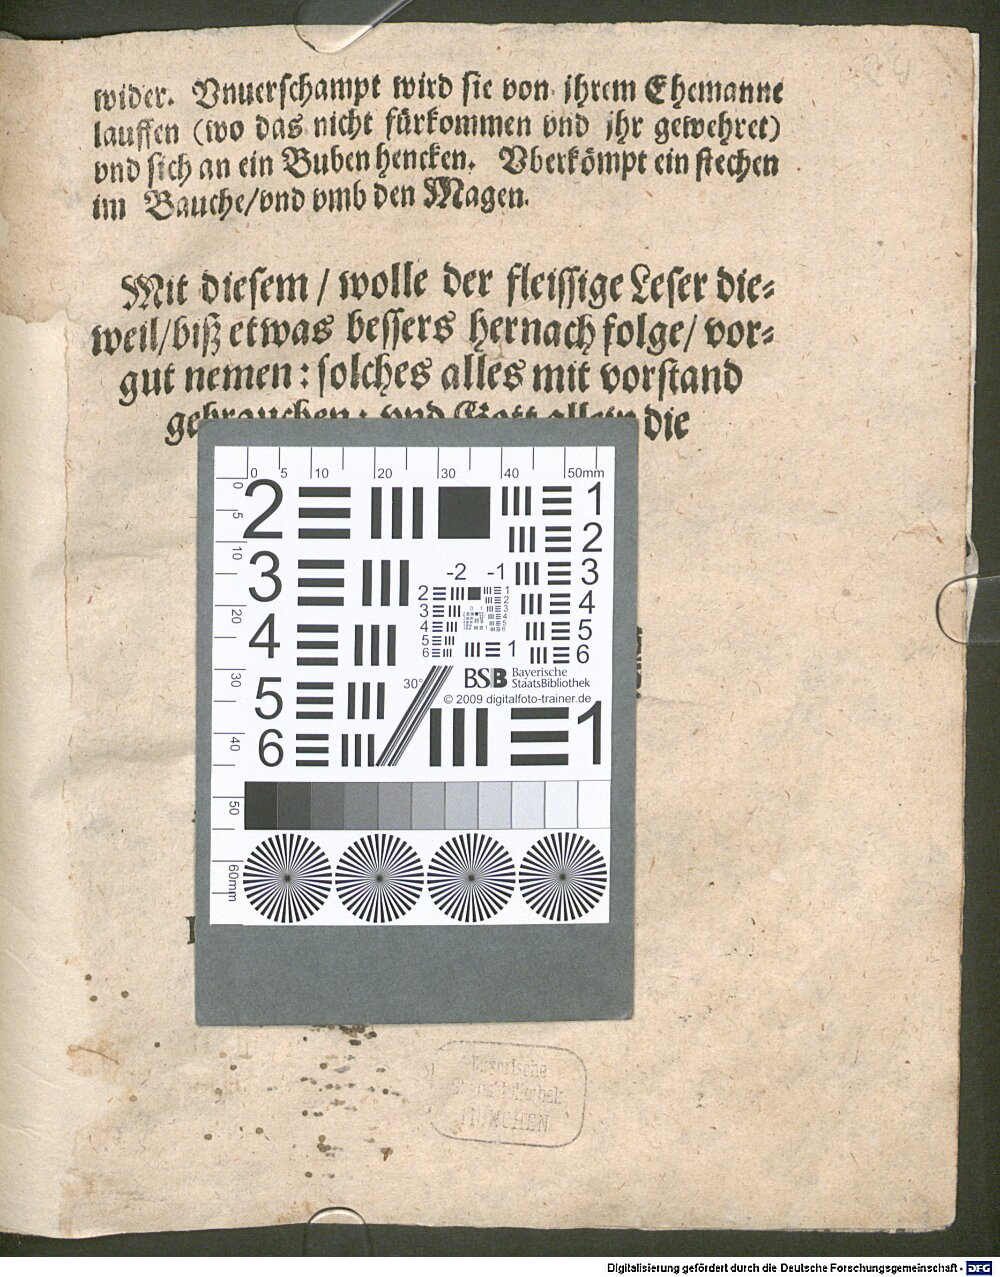 wider. Vnuerschampt wird sie von ihrem Ehemanne
lauffen (wo das nicht fürkommen vnd jhr gewehret)
vnd sich an ein Buben hencken. Vberkömpt ein stechen
im Bauche/vnd vmb den Magen.
Mit diesem / wolle der fleissige Leser die-
weil/biß etwas bessers hernach folge/ vor-
gut nemen: solches alles mit vorstand
gebrauchen: vnd Gott allein die
0 5 10 20 30 40 50mm
0 5 10 20 30 40 50 60mm
2 1
2
3 3
4 4
5 5
6 6
-2 -1
2 1
3 2
4 3
5 4
6 5
1
30°
BSB Bayerische
StaatsBibliothek
© 2009 digitalfoto-trainer.de
1
Bayerische
Staatsbibliothek
MÜNCHEN
Digitalisierung gefördert durch die Deutsche Forschungsgemeinschaft - DFG